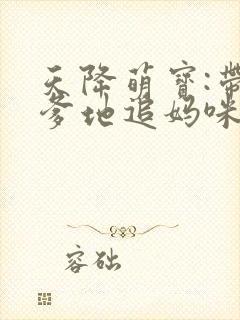 天降萌寶:帶
爹地追妈咪
容础